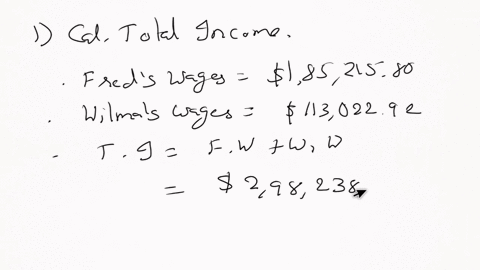 1) Cal. Total Income.
. Fred's Wages = $1,85,215.80
. Wilma's Wages = $113,022.92
. T.I = F.W + W.W
= $2,98,238